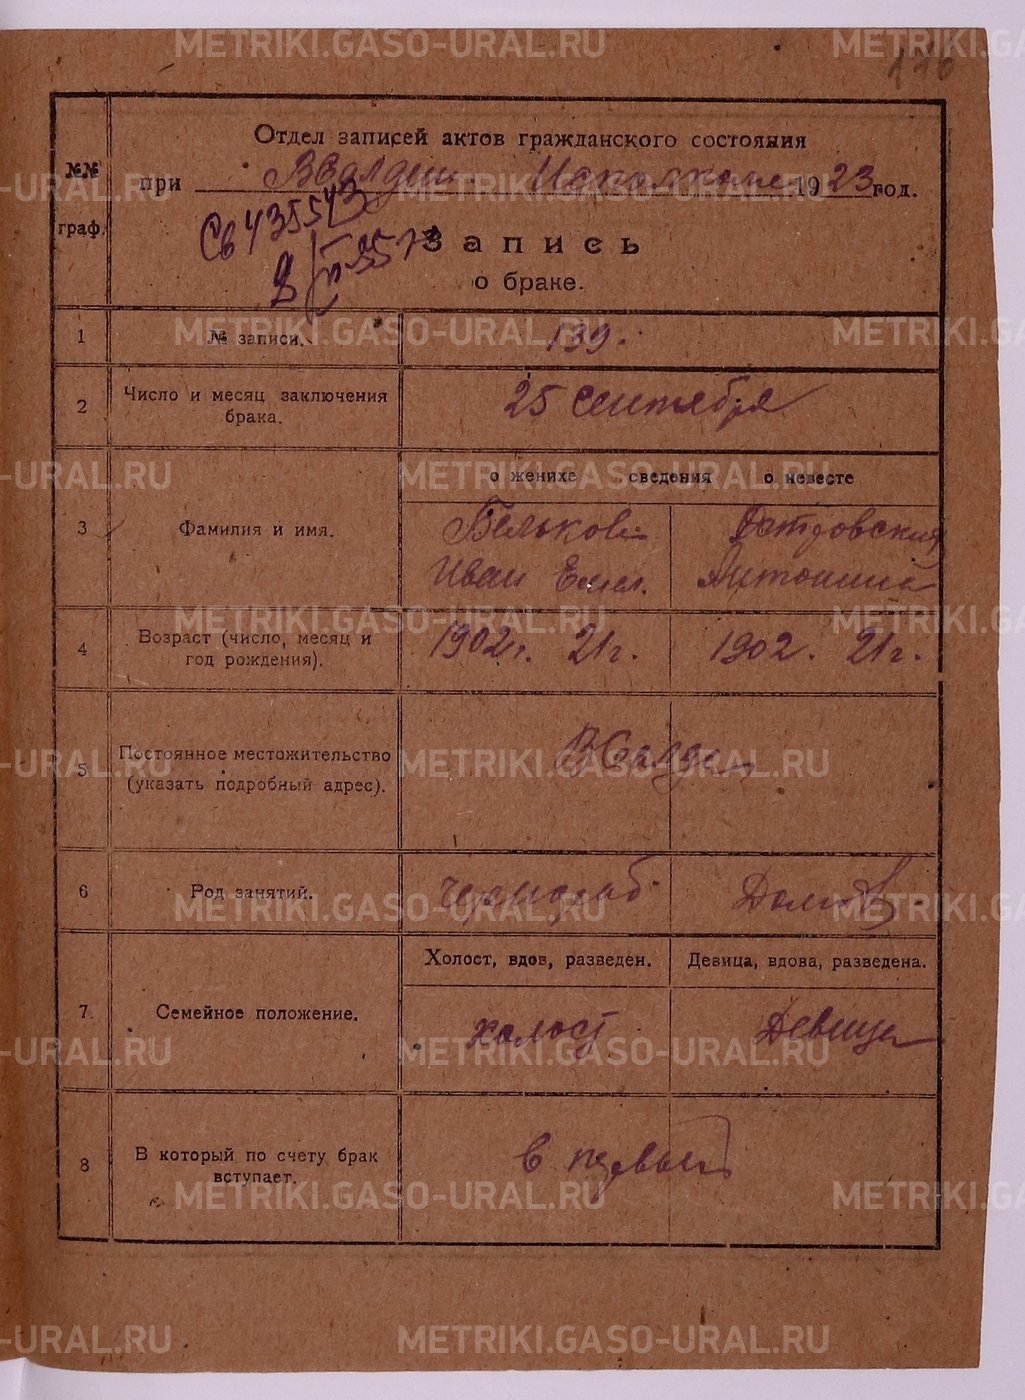 176
Отдел записей актов гражданского состояния
№№ граф.
при ВСалдин. Исполкоме 1923 год.
Св 435543
Запись
о браке.
1 № записи. 139.
2 Число и месяц заключения брака. 25 сентября
о женихе сведения о невесте
3 Фамилия и имя. Бельков Островския
Иван Емел. Антонина
4 Возраст (число, месяц и год рождения). 1902г. 21г. 1902. 21г.
5 Постоянное местожительство (указать подробный адрес). ВСалда
6 Род занятий. Чернораб Домов.
Холост, вдов, разведен. Девица, вдова, разведена.
7. Семейное положение. холост Девица
8 В который по счету брак вступает. в первый
METRIKI.GASO-URAL.RU